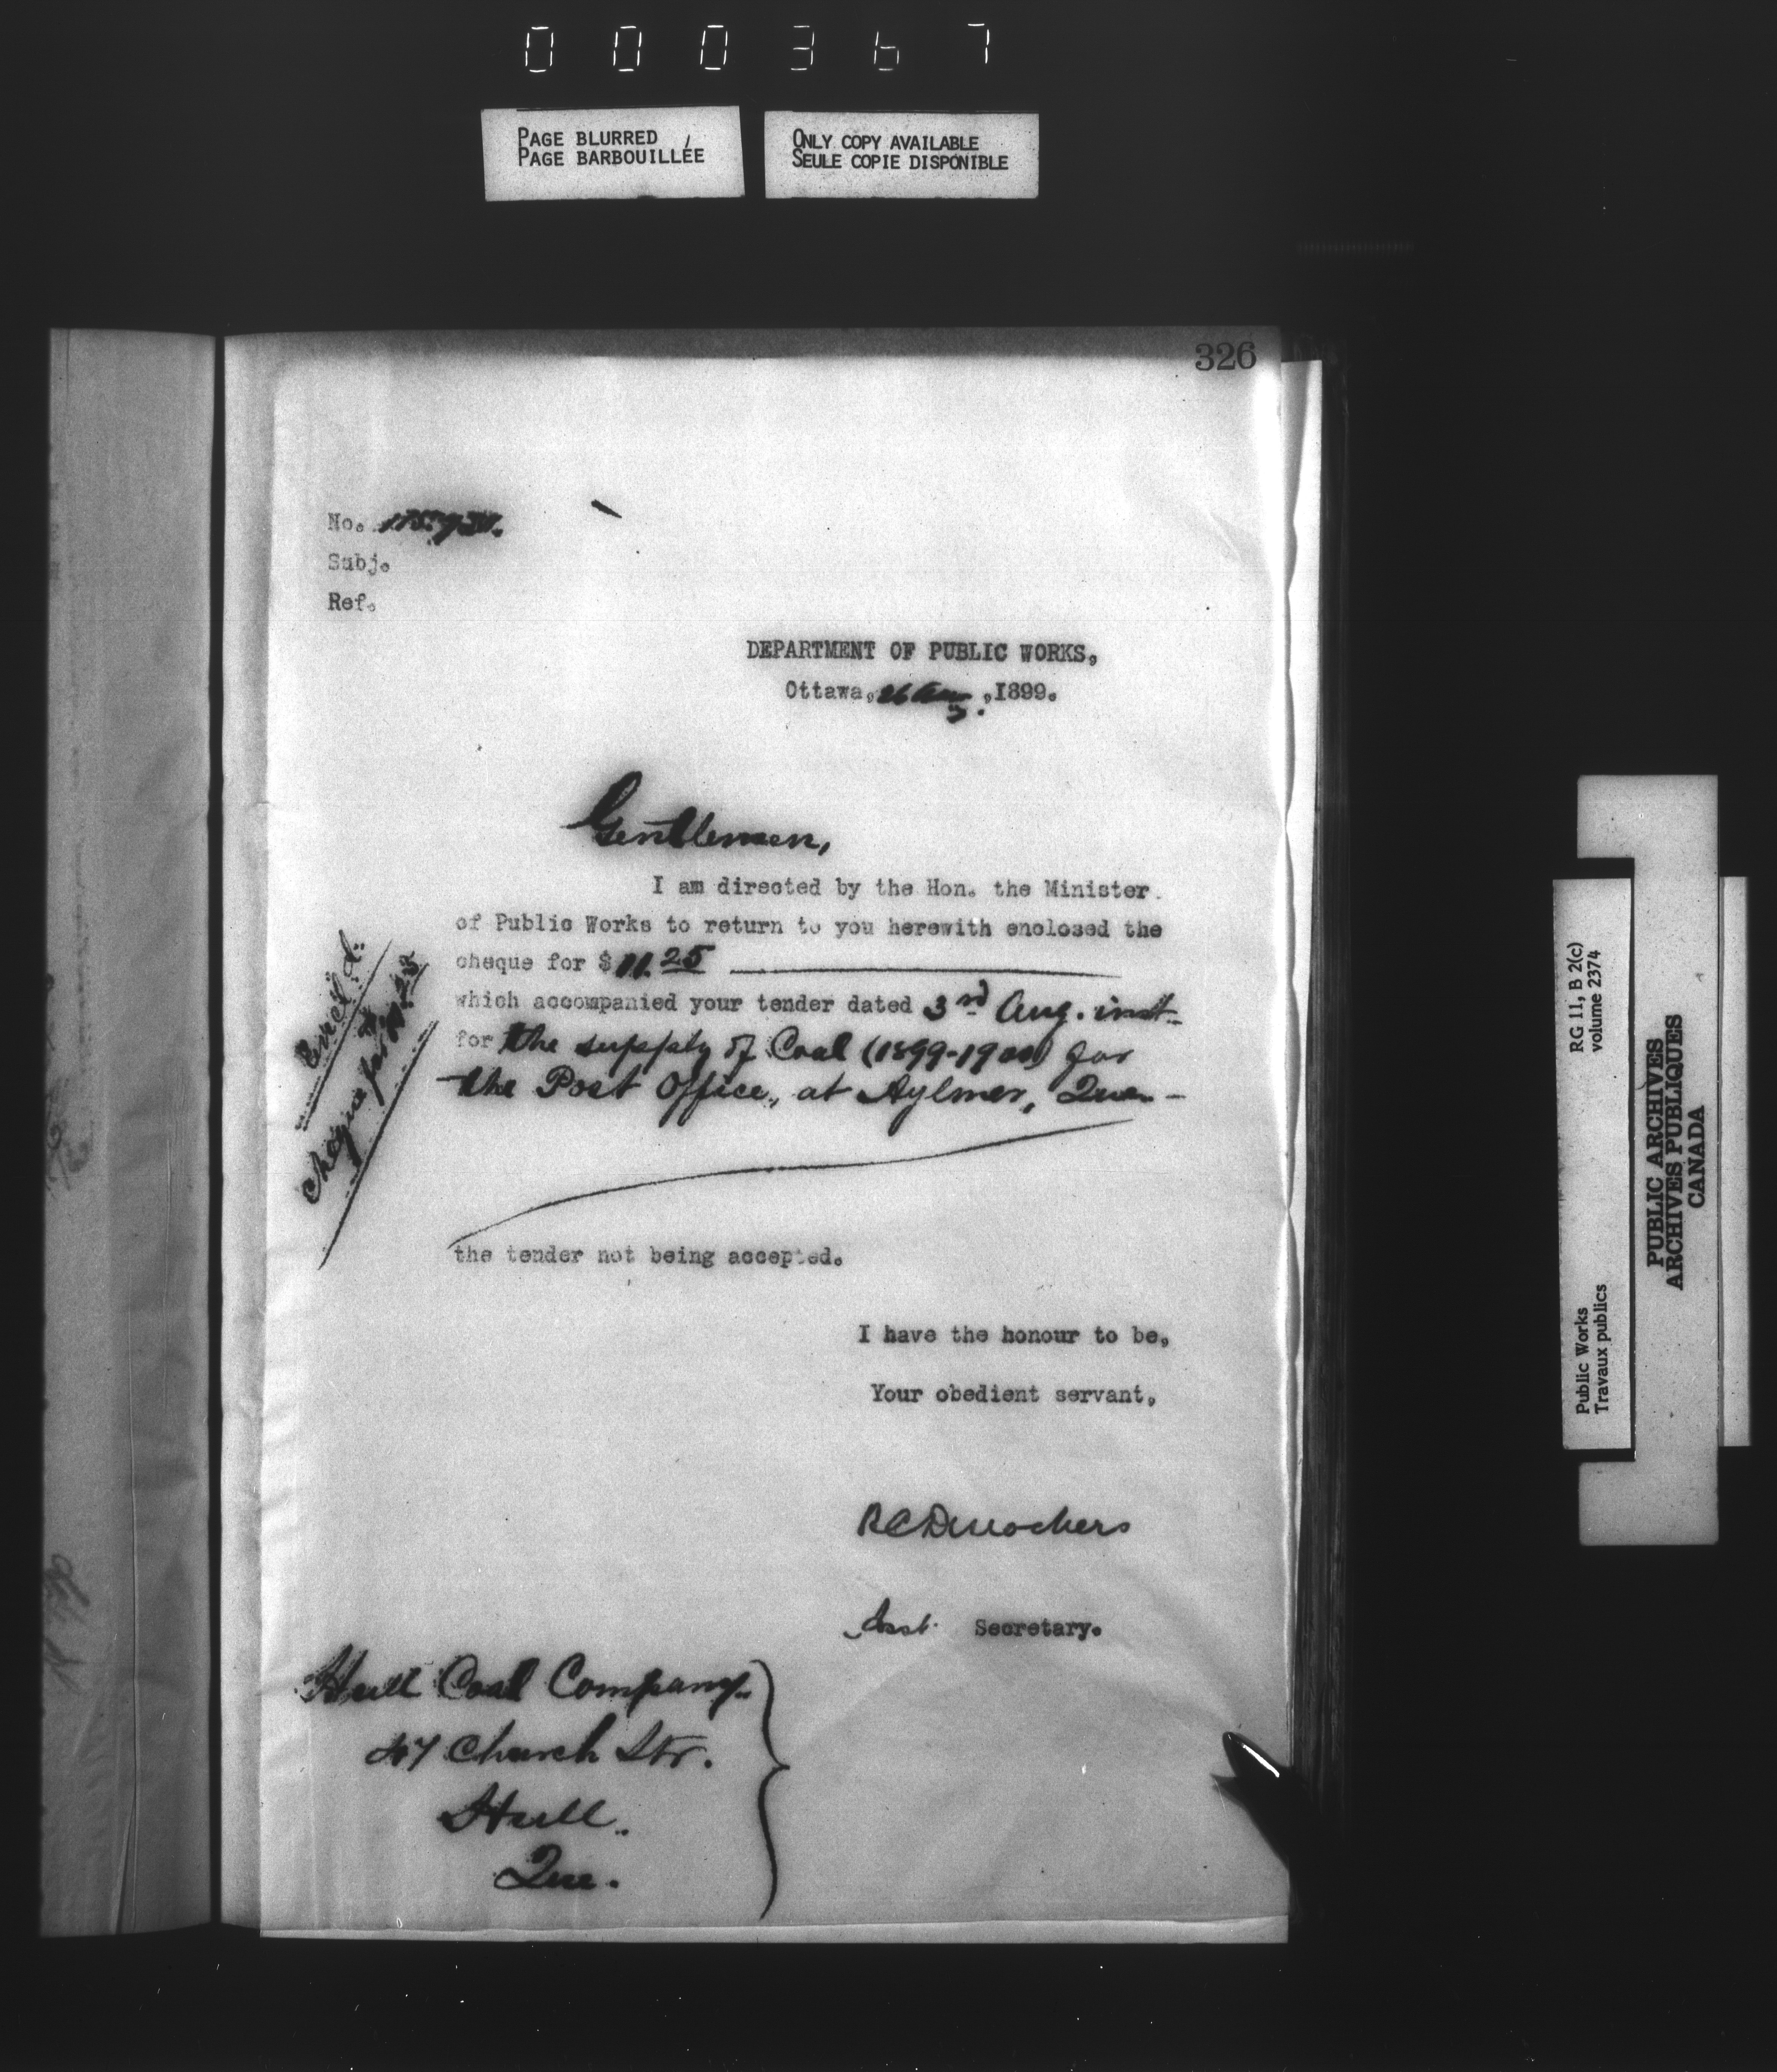 000367
PAGE BLURRED
PAGE BARBOUILLÉE
ONLY COPY AVAILABLE
SEULE COPIE DISPONIBLE
326
No.
Subj.
Ref.
DEPARTMENT OF PUBLIC WORKS,
Ottawa, 26 Aug. ,1899.
Gentlemen,
I am directed by the Hon. the Minister
of Public Works to return to you herewith enclosed the
cheque for $ 11.25
which accompanied your tender dated 3rd Aug. inst.
for the supply of Coal (1899-1900) for
the Post Office, at Aylmer, Que.
Encl'd.
Cheque for $11.25
the tender not being accepted.
I have the honour to be,
Your obedient servant,
Asst. Secretary.
Hull Coal Company
47 Church Str.
Hull.
Que.
RG 11, B 2(c)
volume 2374
Public Works
Travaux publics
PUBLIC ARCHIVES
ARCHIVES PUBLIQUES
CANADA